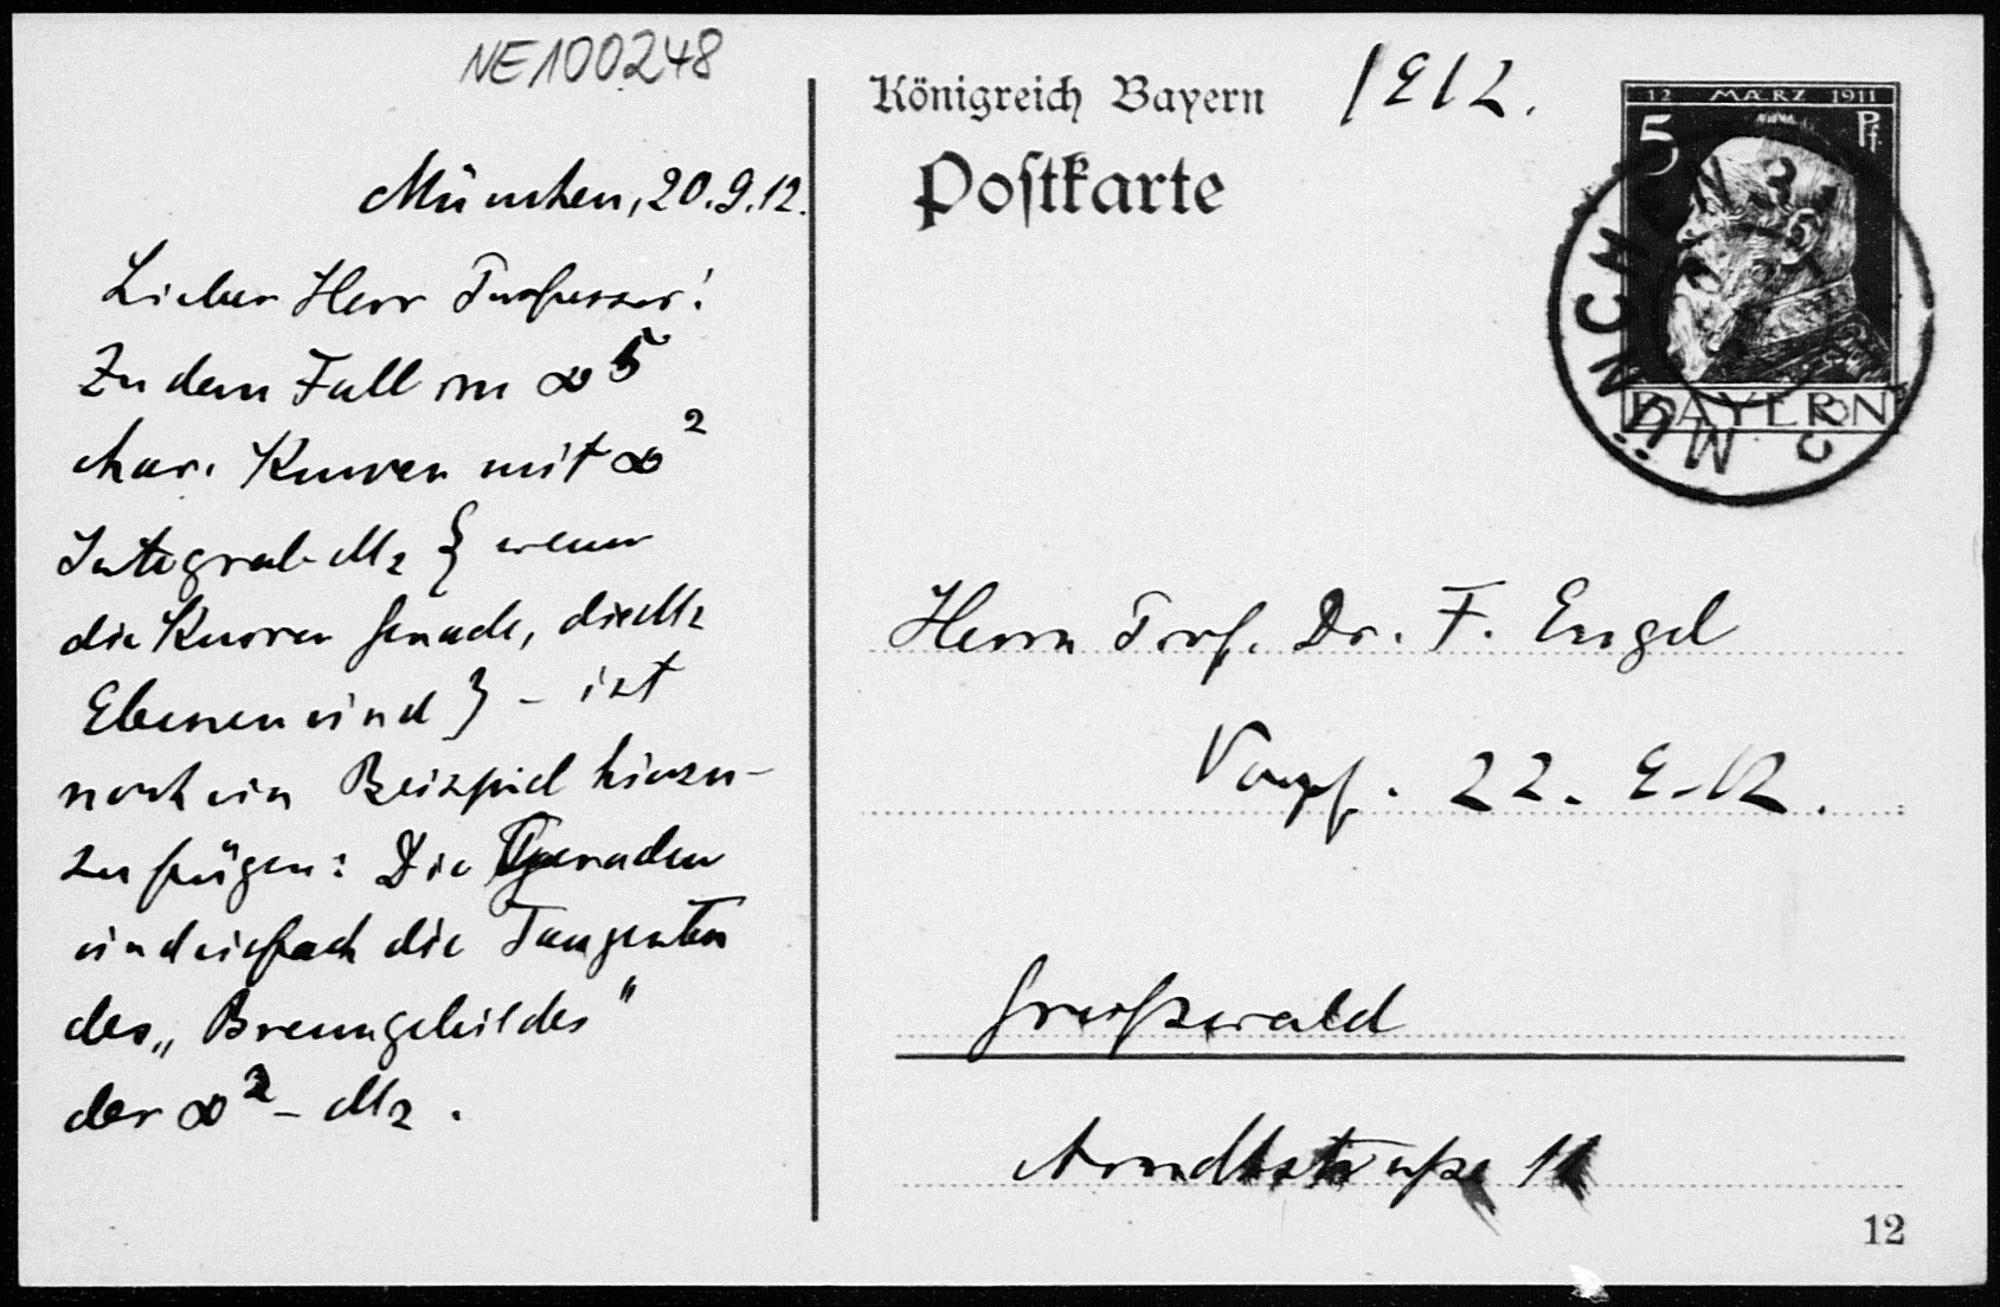 NE100248
München, 20.9.12.
Lieber Herr Professor!
Zu dem Fall von ∞⁵
char. Kurven mit ∞²
Integral-M₂ { wenn
die Kurven Gerade, die M₂
Ebenen sind } – ist
noch ein Beispiel hinzu-
zufügen: Die Geraden
sind einfach die Tangenten
des „Brenngebildes"
der ∞²-M₂.
Königreich Bayern
1912.
Postkarte
12 MÄRZ 1911
5 Pf.
BAYERN
MÜNCHEN
Herrn Prof. Dr. F. Engel
Empf. 22. 9. 12.
Greifswald
Arndtstraße 11
12